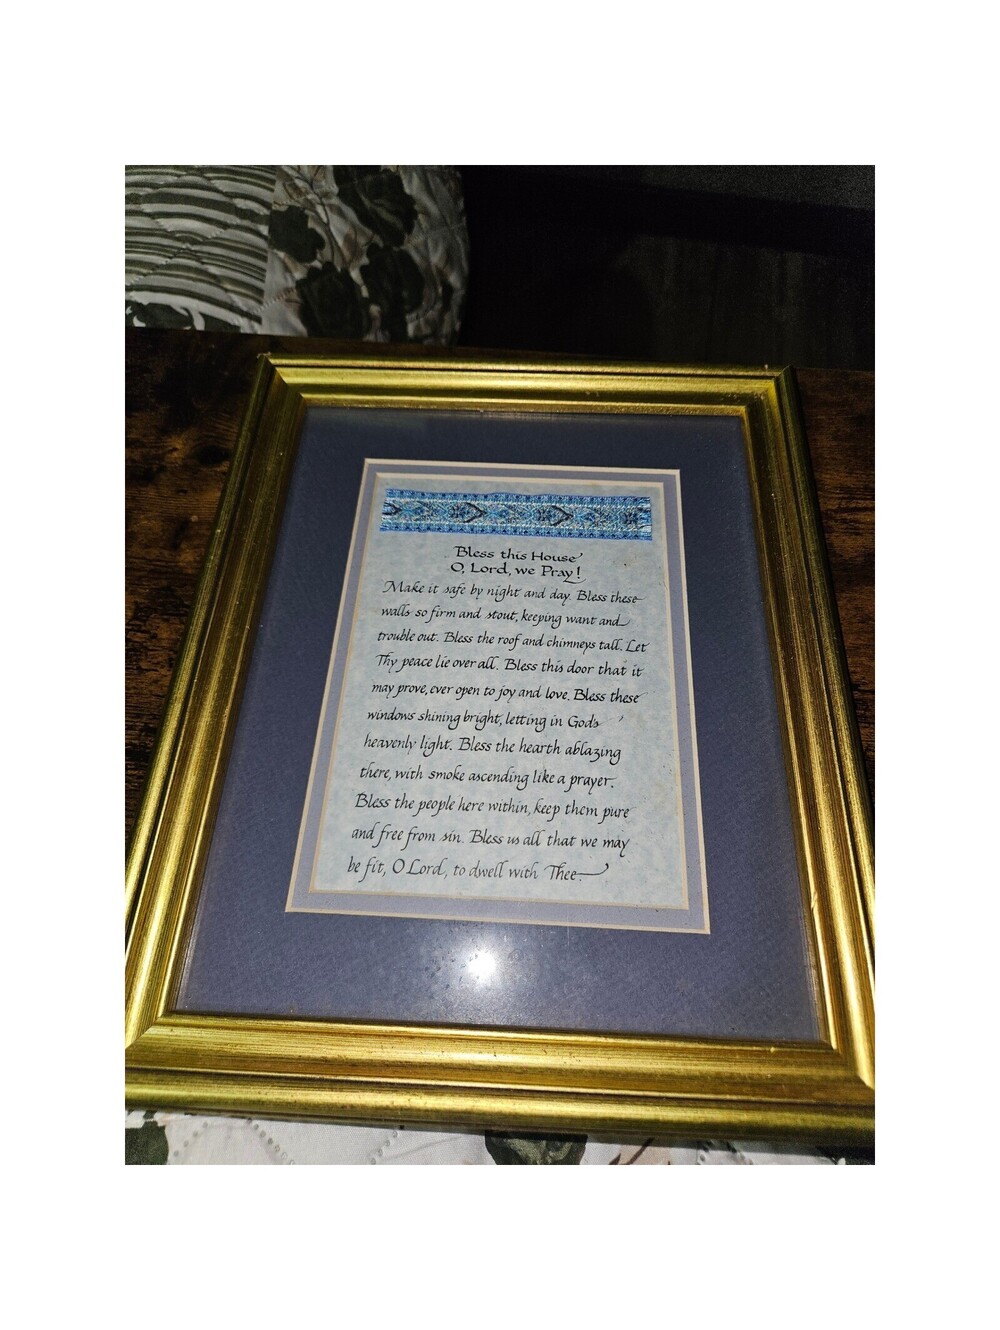 Bless this House
O, Lord, we Pray!
Make it safe by night and day. Bless these
walls so firm and stout, keeping want and
trouble out. Bless the roof and chimneys tall. Let
Thy peace lie over all. Bless this door that it
may prove, ever open to joy and love. Bless these
windows shining bright, letting in God's
heavenly light. Bless the hearth ablazing
there, with smoke ascending like a prayer.
Bless the people here within, keep them pure
and free from sin. Bless us all that we may
be fit, O Lord, to dwell with Thee.